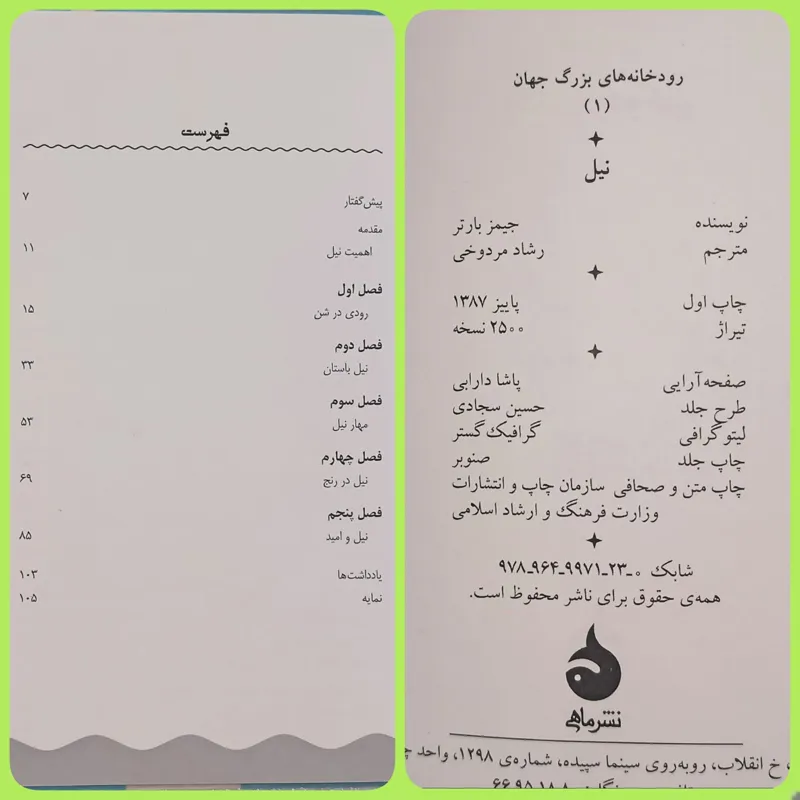 فهرست
پیش‌گفتار ۷
مقدمه
اهمیت نیل ۱۱
فصل اول
رودی در شن ۱۵
فصل دوم
نیل باستان ۳۳
فصل سوم
مهار نیل ۵۳
فصل چهارم
نیل در رنج ۶۹
فصل پنجم
نیل و امید ۸۵
یادداشت‌ها ۱۰۳
نمایه ۱۰۵
رودخانه‌های بزرگ جهان
(۱)
نیل
نویسنده جیمز بارتر
مترجم رشاد مردوخی
چاپ اول پاییز ۱۳۸۷
تیراژ ۲۵۰۰ نسخه
صفحه‌آرایی پاشا دارابی
طرح جلد حسین سجادی
لیتوگرافی گرافیک‌گستر
چاپ جلد صنوبر
چاپ متن و صحافی سازمان چاپ و انتشارات
وزارت فرهنگ و ارشاد اسلامی
شابک ۰ـ۲۳ـ۹۹۷۱ـ۹۶۴ـ۹۷۸
همه‌ی حقوق برای ناشر محفوظ است.
نشرماهی
، خ انقلاب، روبه‌روی سینما سپیده، شماره‌ی ۱۲۹۸، واحد